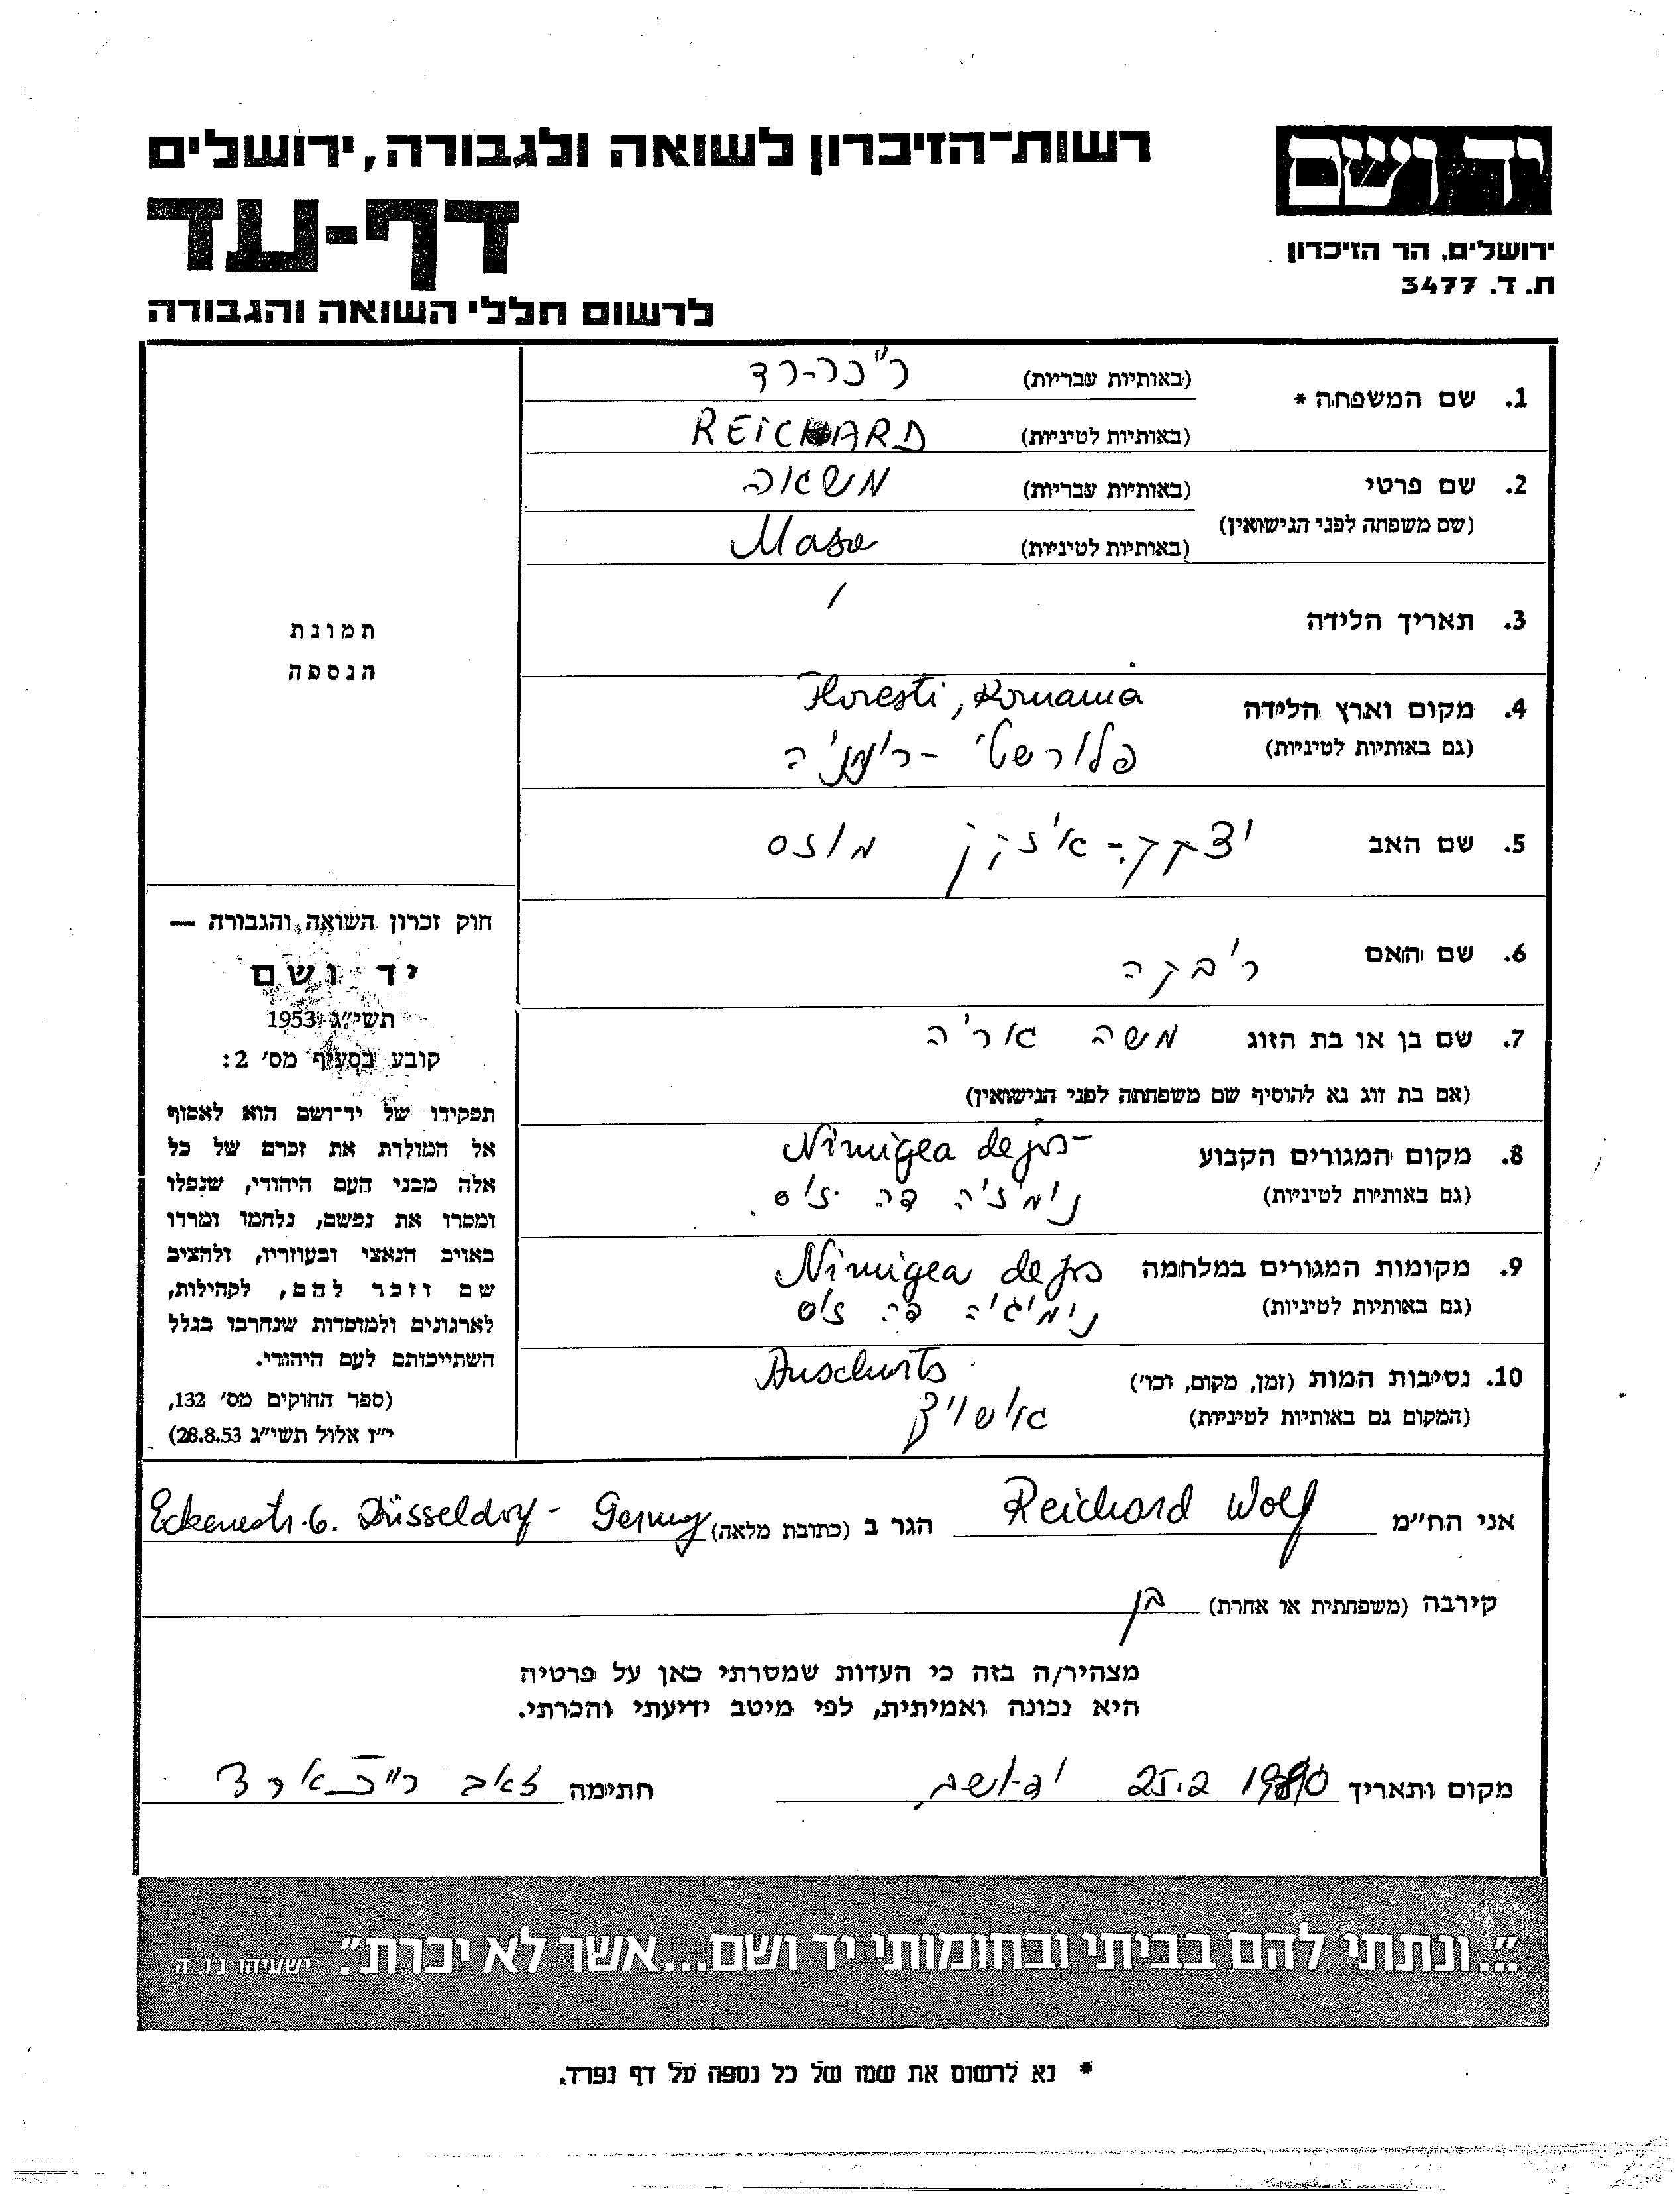 יד ושם
רשות־הזיכרון לשואה ולגבורה, ירושלים
דף-עד
לרשום חללי השואה והגבורה
ירושלים, הר הזיכרון
ת. ד. 3477
1. שם המשפחה *
(באותיות עבריות) רייכר-רד
(באותיות לטיניות) REICHARD
2. שם פרטי
(שם משפחה לפני הנישואין)
(באותיות עבריות) משאה
(באותיות לטיניות) Masa
3. תאריך הלידה /
4. מקום וארץ הלידה Floresti, Romania
(גם באותיות לטיניות) פלורשטי - רומניה
5. שם האב יצקק - איזק מוזס
6. שם האם ריבקה
7. שם בן או בת הזוג משה אריה
(אם בת זוג נא להוסיף שם משפחתה לפני הנישואין)
8. מקום המגורים הקבוע Nimigea de jos-
(גם באותיות לטיניות) נימז'ה דה ז'וס
9. מקומות המגורים במלחמה Nimigea de jos
(גם באותיות לטיניות) נימיג'יה דה ז'וס
10. נסיבות המות (זמן, מקום, וכו') Auschwits
(המקום גם באותיות לטיניות) אושוויץ
תמונת
הנספה
חוק זכרון השואה והגבורה —
יד ושם
תשי"ג 1953
קובע בסעיף מס' 2:
תפקידו של יד־ושם הוא לאסוף
אל המולדת את זכרם של כל
אלה מבני העם היהודי, שנפלו
ומסרו את נפשם, נלחמו ומרדו
באויב הנאצי ובעוזריו, ולהציב
שם וזכר להם, לקהילות,
לארגונים ולמוסדות שנחרבו בגלל
השתייכותם לעם היהודי.
(ספר החוקים מס' 132,
י"ז אלול תשי"ג 28.8.53)
אני הח"מ Reichard Wolf הגר ב (כתובת מלאה) 6. Düsseldorf - Germany
קירבה (משפחתית או אחרת) בן
מצהיר/ה בזה כי העדות שמסרתי כאן על פרטיה
היא נכונה ואמיתית, לפי מיטב ידיעתי והכרתי.
מקום ותאריך 25.2 1990 חתימה זאב רייכארד
"...ונתתי להם בביתי ובחומותי יד ושם...אשר לא יכרת". ישעיהו נו, ה
* נא לרשום את שמו של כל נספה על דף נפרד.